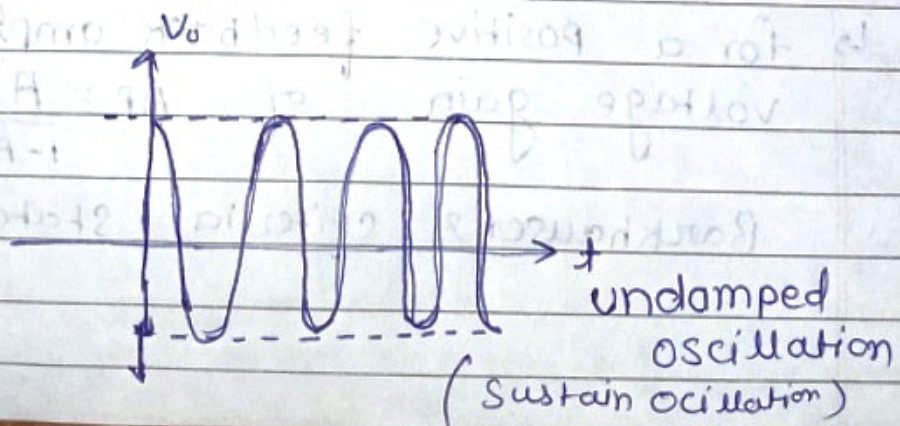 Vo
t
undamped
oscillation
(sustain ocillation)